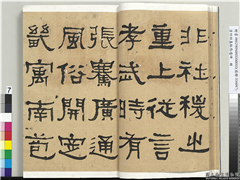 非社稷之
重上從言
孝武時有
張騫廣通
風俗開定
畿寓南苞
7